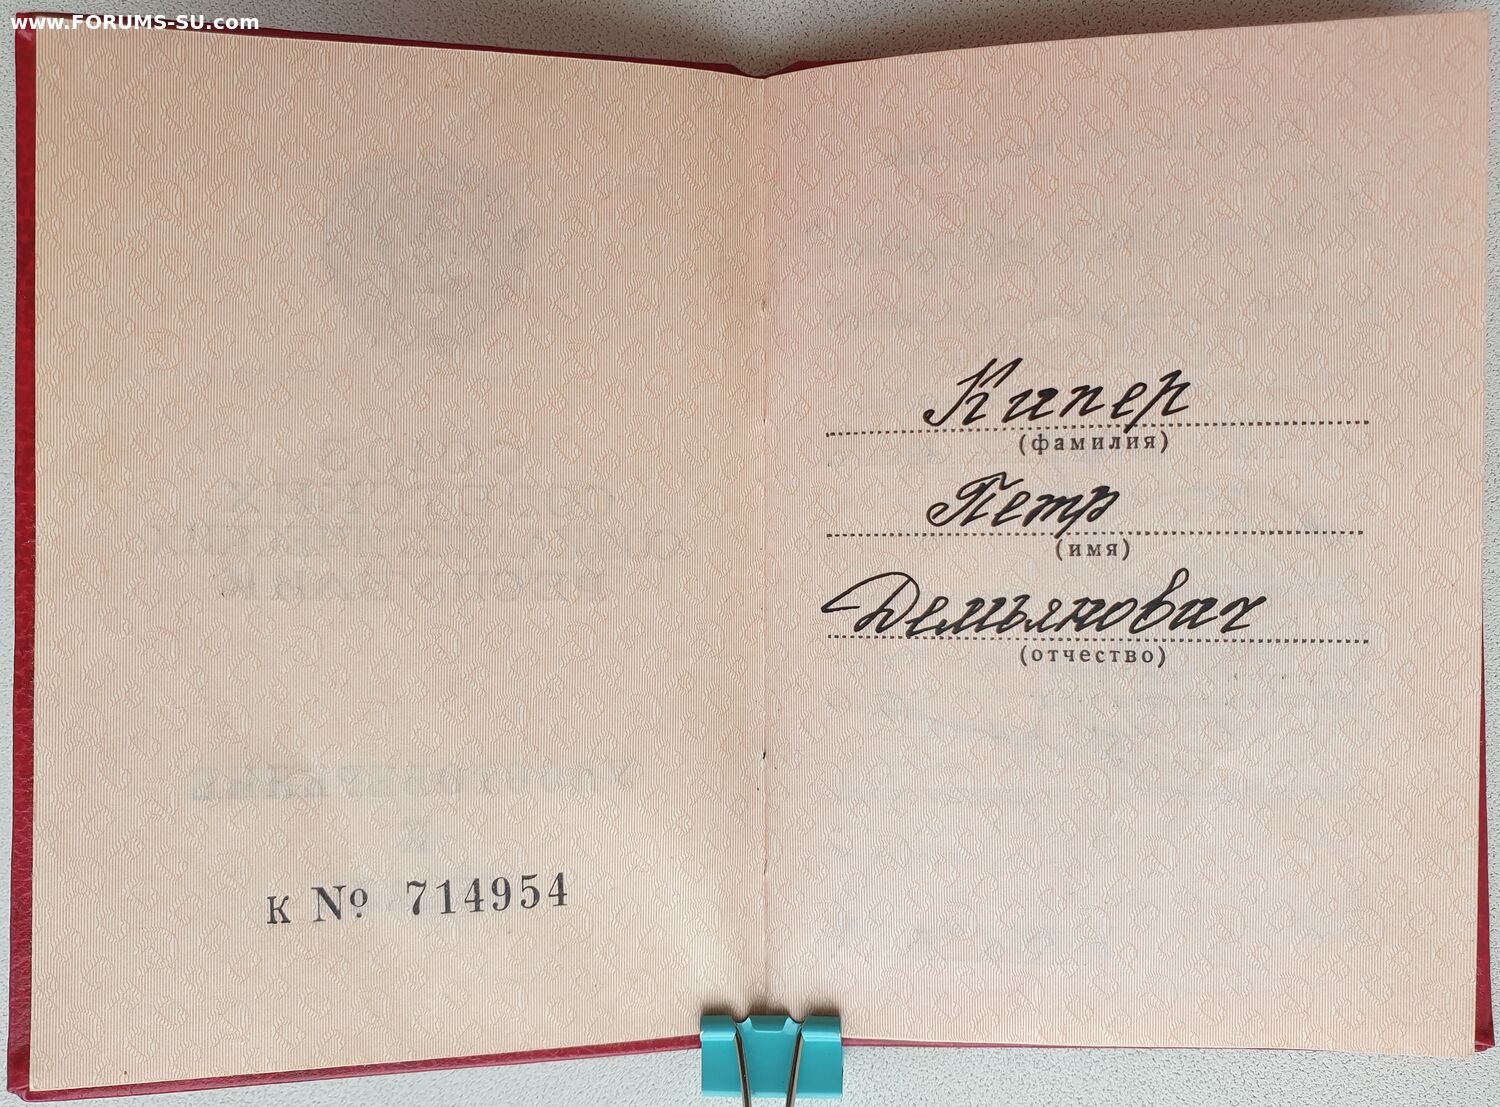 www.FORUMS-SU.com
К № 714954
Кипер
(фамилия)
Петр
(имя)
Демьянович
(отчество)